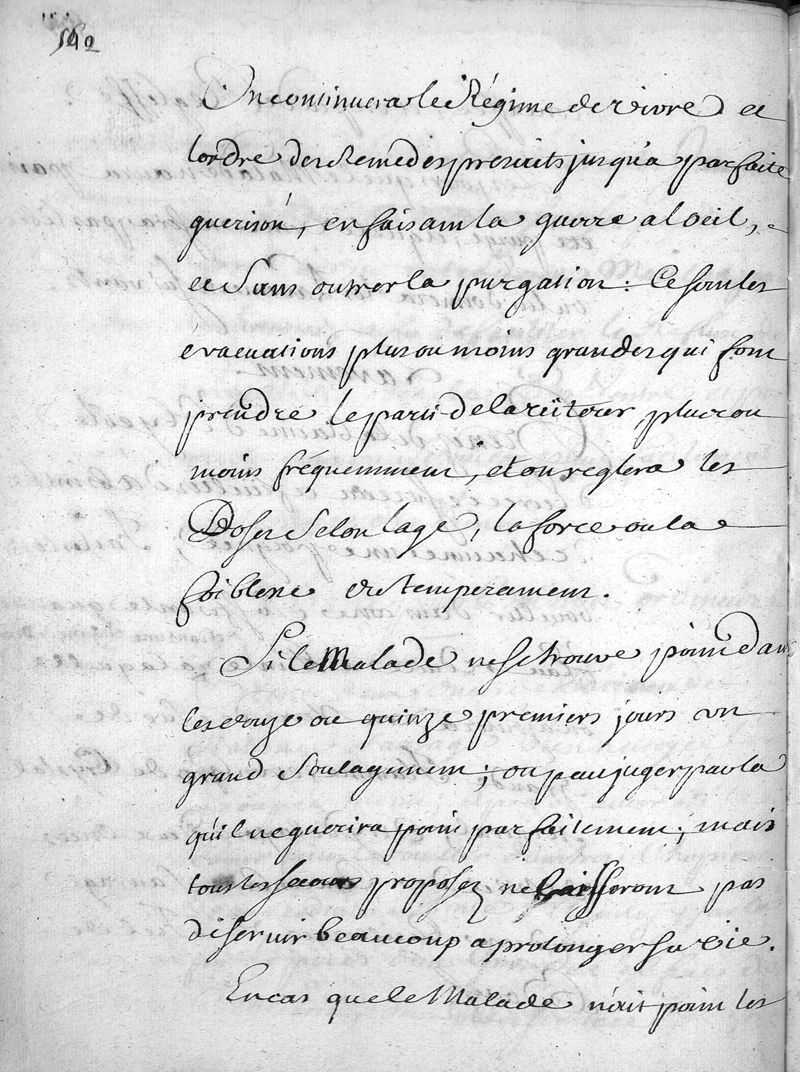 On continuera le Régime de vivre et
lordre des Remedes prescrits jusqu'a parfaite
guerison, en faisant la guerre a loeil,
et sans outrer la purgation : Ce sont les
evacuations plus ou moins grandes qui font
prendre le parti de la reïterer plus ou
moins fréquemment, et on reglera les
Doses selon lage, la force ou la
foiblesse et temperament.
Si le Malade ne se trouve point dans
les douze ou quinze premiers jours un
grand soulagement; on peut juger par la
qu'il ne guerira point parfaitement; mais
tous les secours proposez ne laisseront pas
de servir beaucoup a prolonger sa vie.
En cas que le Malade n'ait point les